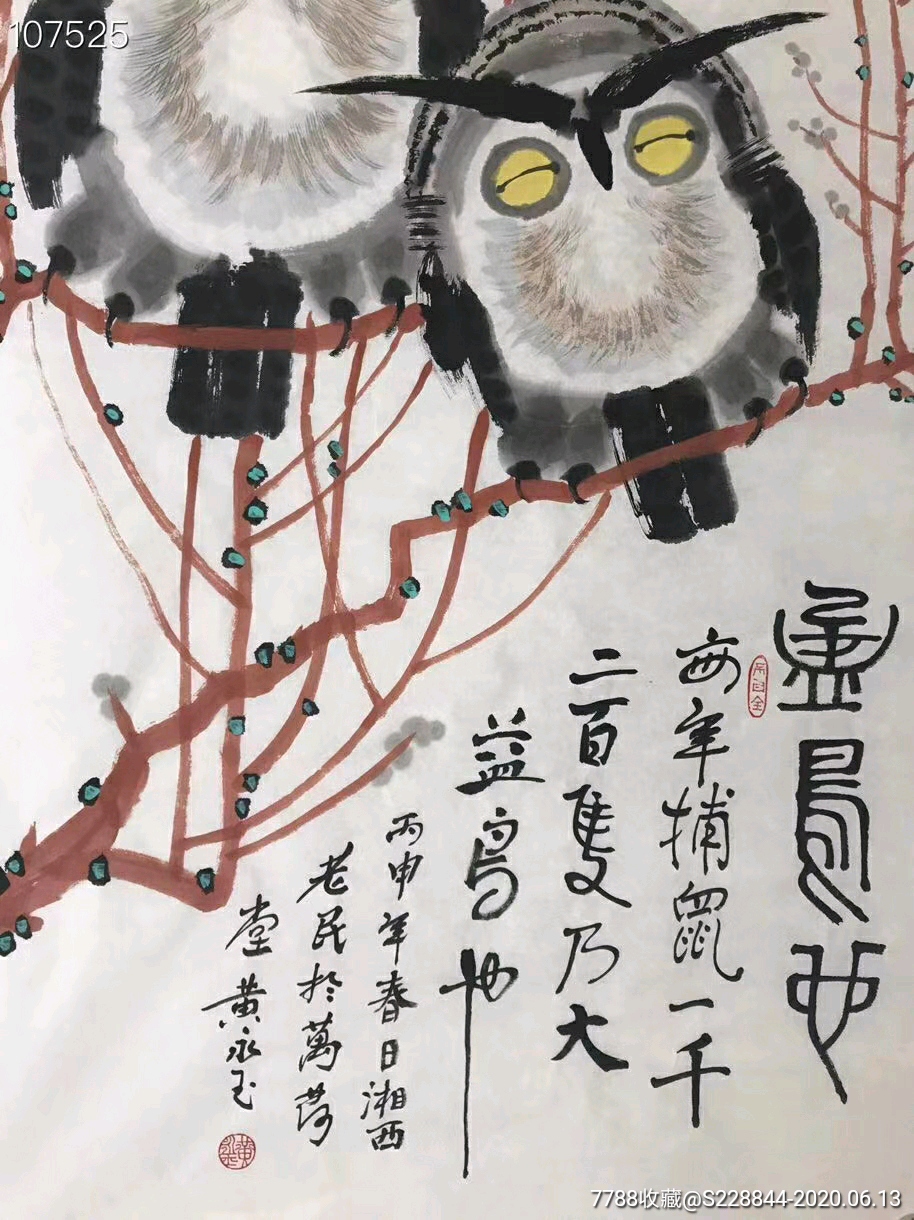 107525
益鳥也
每年捕鼠一千
二百隻乃大
益鳥也
丙申年春日湘西
老民於萬荷
堂 黄永玉
7788收藏@S228844-2020.06.13